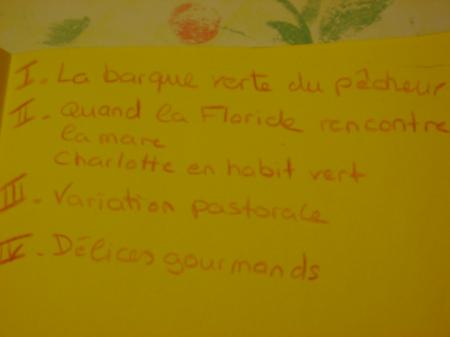 I. La barque verte du pêcheur
II. Quand la Floride rencontre
la mare
Charlotte en habit vert
III. Variation pastorale
IV. Délices gourmands